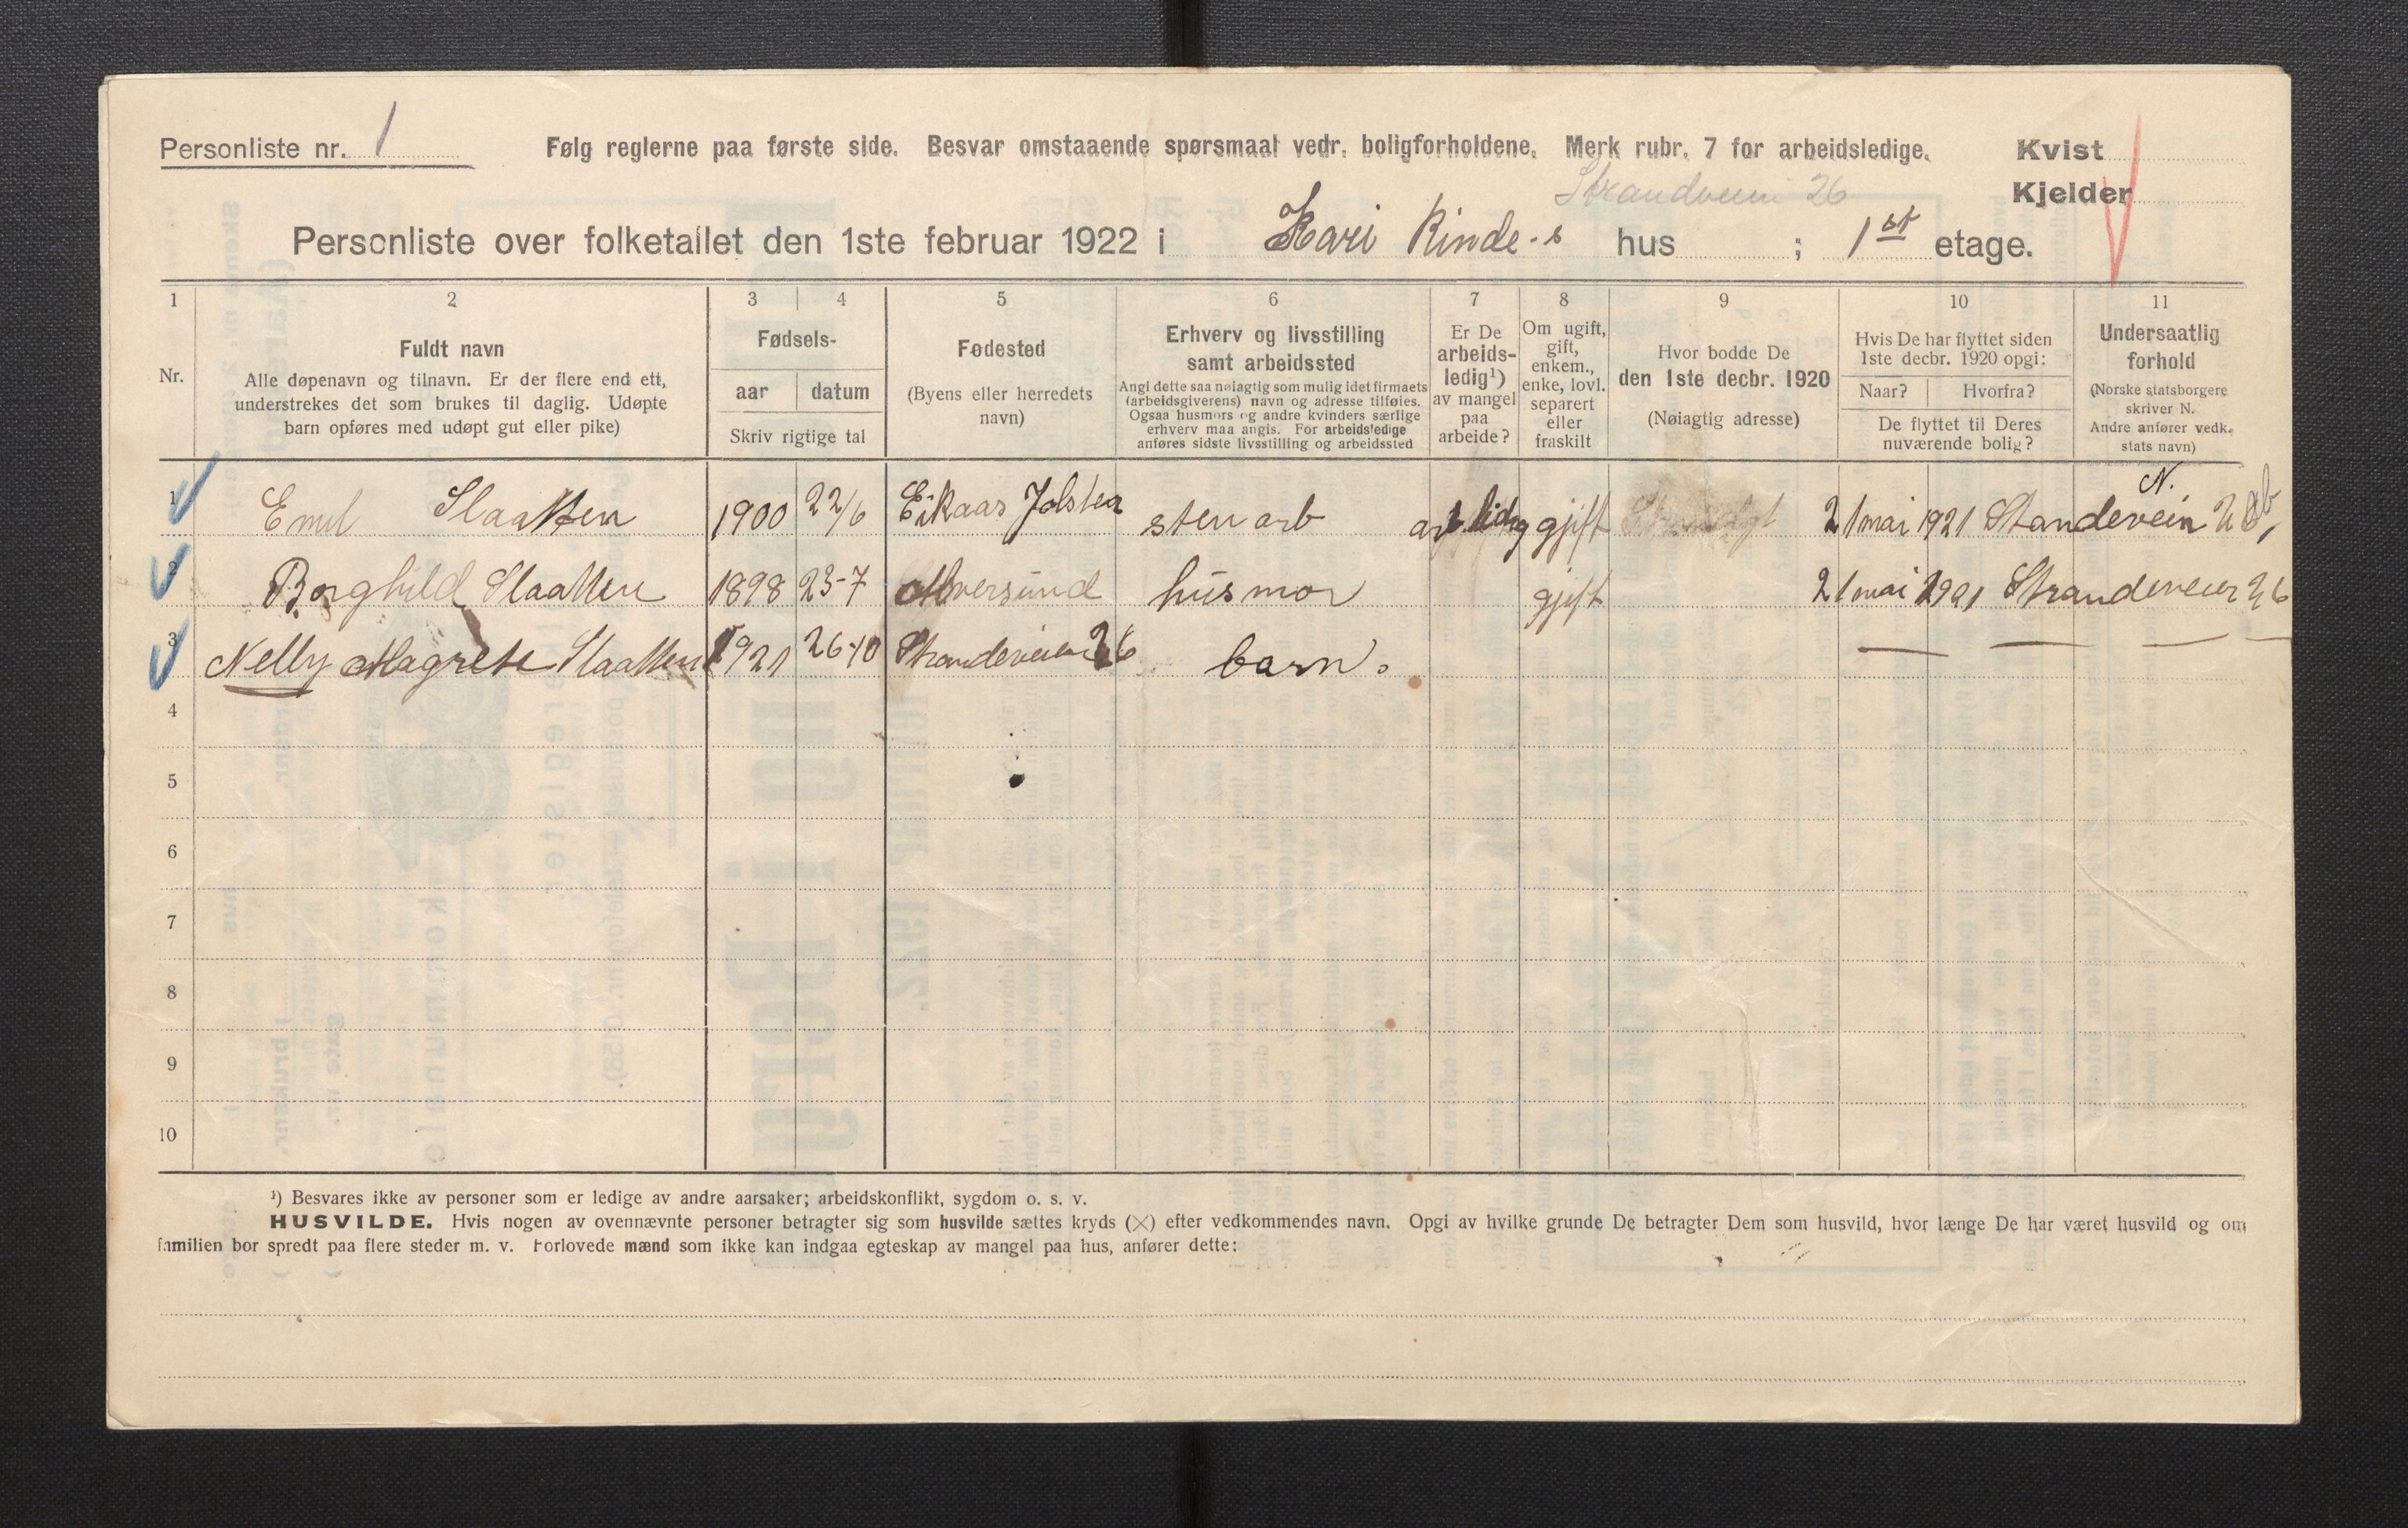 Personliste nr. 1 Følg reglerne paa første side. Besvar omstaaende spørsmaal vedr. boligforholdene. Merk rubr. 7 for arbeidsledige. Kvist
Strandveien 26 Kjelder
Personliste over folketallet den 1ste februar 1922 i Kari Rinde-s hus ; 1st etage.
1 2 3 4 5 6 7 8 9 10 11
Nr.
Fuldt navn
Alle døpenavn og tilnavn. Er der flere end ett,
understrekes det som brukes til daglig. Udøpte
barn opføres med udøpt gut eller pike)
Fødsels-
aar datum
Skriv rigtige tal
Fødested
(Byens eller herredets
navn)
Erhverv og livsstilling
samt arbeidssted
Angi dette saa nøiagtig som mulig idet firmaets
(arbeidsgiverens) navn og adresse tilføies.
Ogsaa husmors og andre kvinders særlige
erhverv maa angis. For arbeidsledige
anføres sidste livsstilling og arbeidssted
Er De
arbeids-
ledig¹)
av mangel
paa
arbeide?
Om ugift,
gift,
enkem.,
enke, lovl.
separert
eller
fraskilt
Hvor bodde De
den 1ste decbr. 1920
(Nøiagtig adresse)
Hvis De har flyttet siden
1ste decbr. 1920 opgi:
Naar? Hvorfra?
De flyttet til Deres
nuværende bolig?
Undersaatlig
forhold
(Norske statsborgere
skriver N.
Andre anfører vedk.
stats navn)
1 Emil Slaatten 1900 22/6 Eikaas Jølster sten arb arb lidig gjift 21 mai 1921 Standevein N.
2 Borghild Slaatten 1898 23-7 Alversund husmor gjift 21 mai 1921 Strandeveien 26
3 Nelly Magrete Slaatten 1921 26-10 Strandeveien 26 barn. — — —
4
5
6
7
8
9
10
¹) Besvares ikke av personer som er ledige av andre aarsaker; arbeidskonflikt, sygdom o. s. v.
HUSVILDE. Hvis nogen av ovennævnte personer betragter sig som husvilde sættes kryds (×) efter vedkommendes navn. Opgi av hvilke grunde De betragter Dem som husvild, hvor længe De har været husvild og om
familien bor spredt paa flere steder m. v. Forlovede mænd som ikke kan indgaa egteskap av mangel paa hus, anfører dette: